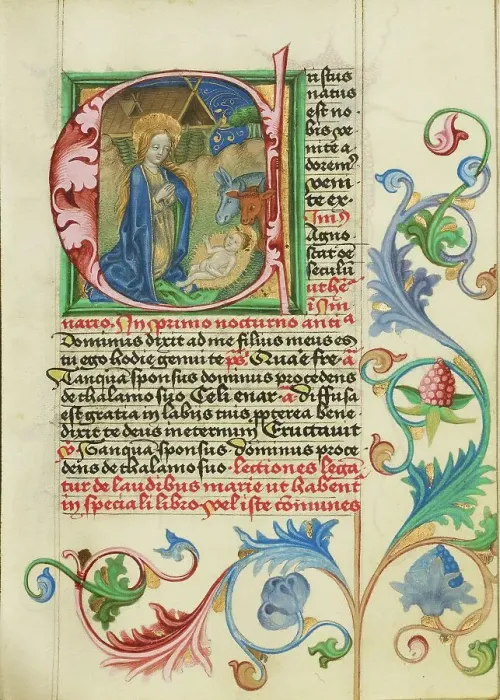 ristus
natus
est no
bis ve
nite a
dorem⁹
Veni
te ex.
Agno
scat oē
seculū
In primo nocturno anti ᵃ
Dominus dixit ad me filius meus es
tu ego hodie genui te p̄s Quare fre. a
Tanquā sponsus dominus procedens
de thalamo suo Celi enar. a diffusa
est gratia in labijs tuis propterea bene
dixit te deus in eternum Eructavit
v Tanquā sponsus Dominus proce
dens de thalamo suo lectiones lega
tur de laudibus marie ut habent
in speciali libro vel iste cōmunes